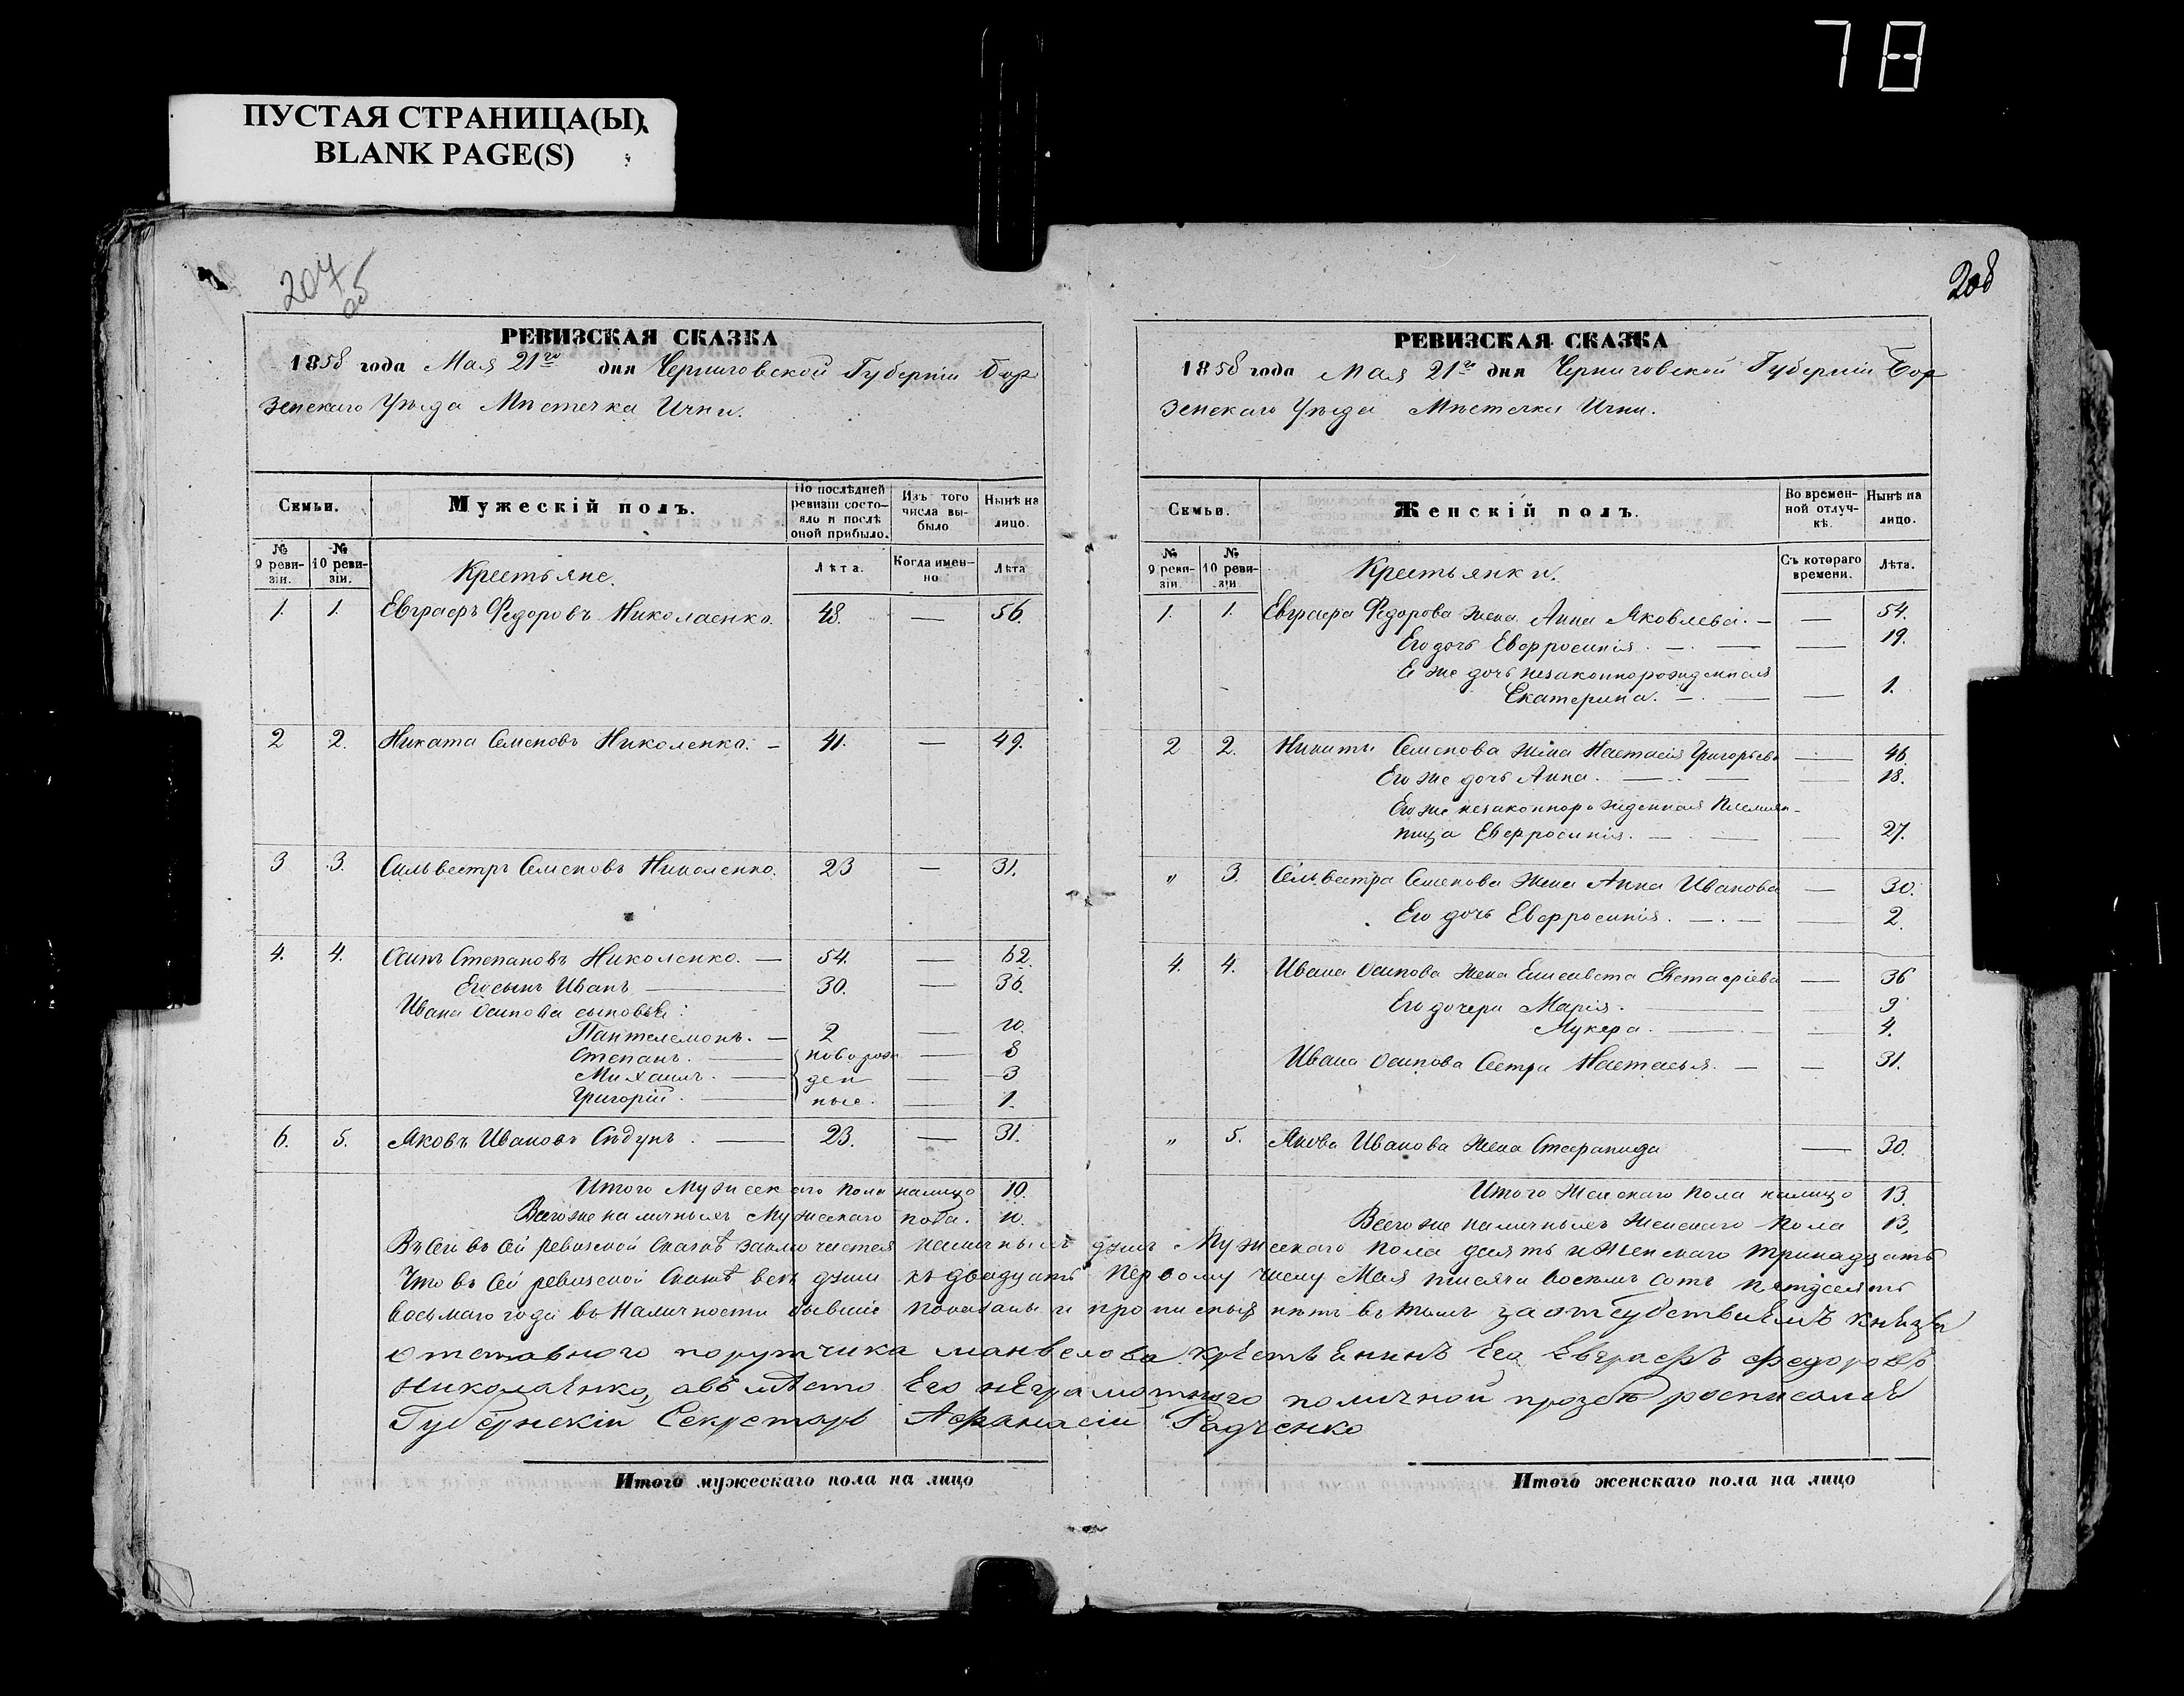 78
ПУСТАЯ СТРАНИЦА(Ы).
BLANK PAGE(S)
207
об
208
РЕВИЗСКАЯ СКАЗКА
1858 года Мая 21го дня Черниговской Губерніи Бор
зенскаго Уѣзда Мѣстечка Ични.
Семьи.
Мужескій полъ.
По послѣдней ревизіи состояло и послѣ оной прибыло.
Изъ того числа выбыло
Нынѣ на лицо.
№ 9 ревизіи.
№ 10 ревизіи.
Крестьяне.
Лѣта.
Когда именно
Лѣта
1. 1. Евграфъ Федоровъ Николаенко. 48. — 56.
2 2. Никита Семеновъ Николенко. — 41. — 49.
3 3. Сильвестръ Семеновъ Николенко. 23 — 31.
4. 4. Осипъ Степановъ Николенко. — 54. — 62.
Его сынъ Иванъ — 30. — 38.
Ивана Осипова сыновья:
Пантелемонъ. — 2 — 10.
Степанъ. — новорож — 8
Михаилъ. — ден — 3
Григорій. — ные. — 1.
6. 5. Яковъ Ивановъ Сѣдунъ. — 23. — 31.
Итого Мужескаго пола налицо 10.
Всего же наличныхъ Мужескаго пола. 10.
РЕВИЗСКАЯ СКАЗКА
1858 года Мая 21го дня Черниговской Губерніи Бор
зенскаго Уѣзда Мѣстечка Ични.
Семьи.
Женскій полъ.
Во временной отлучкѣ.
Нынѣ на лицо.
№ 9 ревизіи
№ 10 ревизіи.
Крестьянки.
Съ котораго времени.
Лѣта.
1. 1. Евграфа Федорова жена Анна Яковлева. — — 54.
Его дочь Евфросинія. — — 19.
Ея же дочь незаконнорожденная
Екатерина. — — 1.
2 2. Никиты Семенова жена Настасія Григорьева — 46.
Его же дочь Анна. — — 18.
Его же незаконнорожденная племян-
ница Евфросинія. — — 27.
" 3. Сельвестра Семенова жена Анна Иванова — 30.
Его дочь Евфросинія. — — 2.
4. 4. Ивана Осипова жена Елисавета Евстафіева — 36
Его дочери Марія. — — 9
Лукера. — — 4.
Ивана Осипова Сестра Настасья. — — 31.
" 5. Якова Иванова жена Стефанида — 30.
Итого женскаго пола налицо 13.
Всего же наличныхъ женскаго пола 13.
Въ сей ревизской сказкѣ заключается наличныхъ душъ Мужескаго пола десять и женскаго тринадцать
Что въ сей ревизской сказкѣ всѣ души къ двадцать первому числу Мая тысяча восемь сотъ пятдесятъ
восьмаго года въ наличности бывшіе показаны и прописныхъ нѣтъ въ томъ за отсудствиемъ князя
отставного порутчика Манвелова крестьенинъ Его Евграфъ Федоровъ
Николаенко, а въмѣсто Его неграмотного поличной прозбѣ росписался
Губернскій Секретарь Афанасій Радченко
Итого мужескаго пола на лицо
Итого женскаго пола на лицо